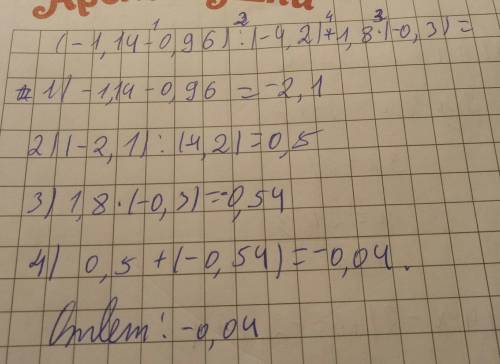 (-1,14-0,96):(-4,2)+1,8·(-0,3)=
1) -1,14-0,96=-2,1
2) (-2,1):(4,2)=0,5
3) 1,8·(-0,3)=-0,54
4) 0,5+(-0,54)=-0,04.
Ответ: -0,04